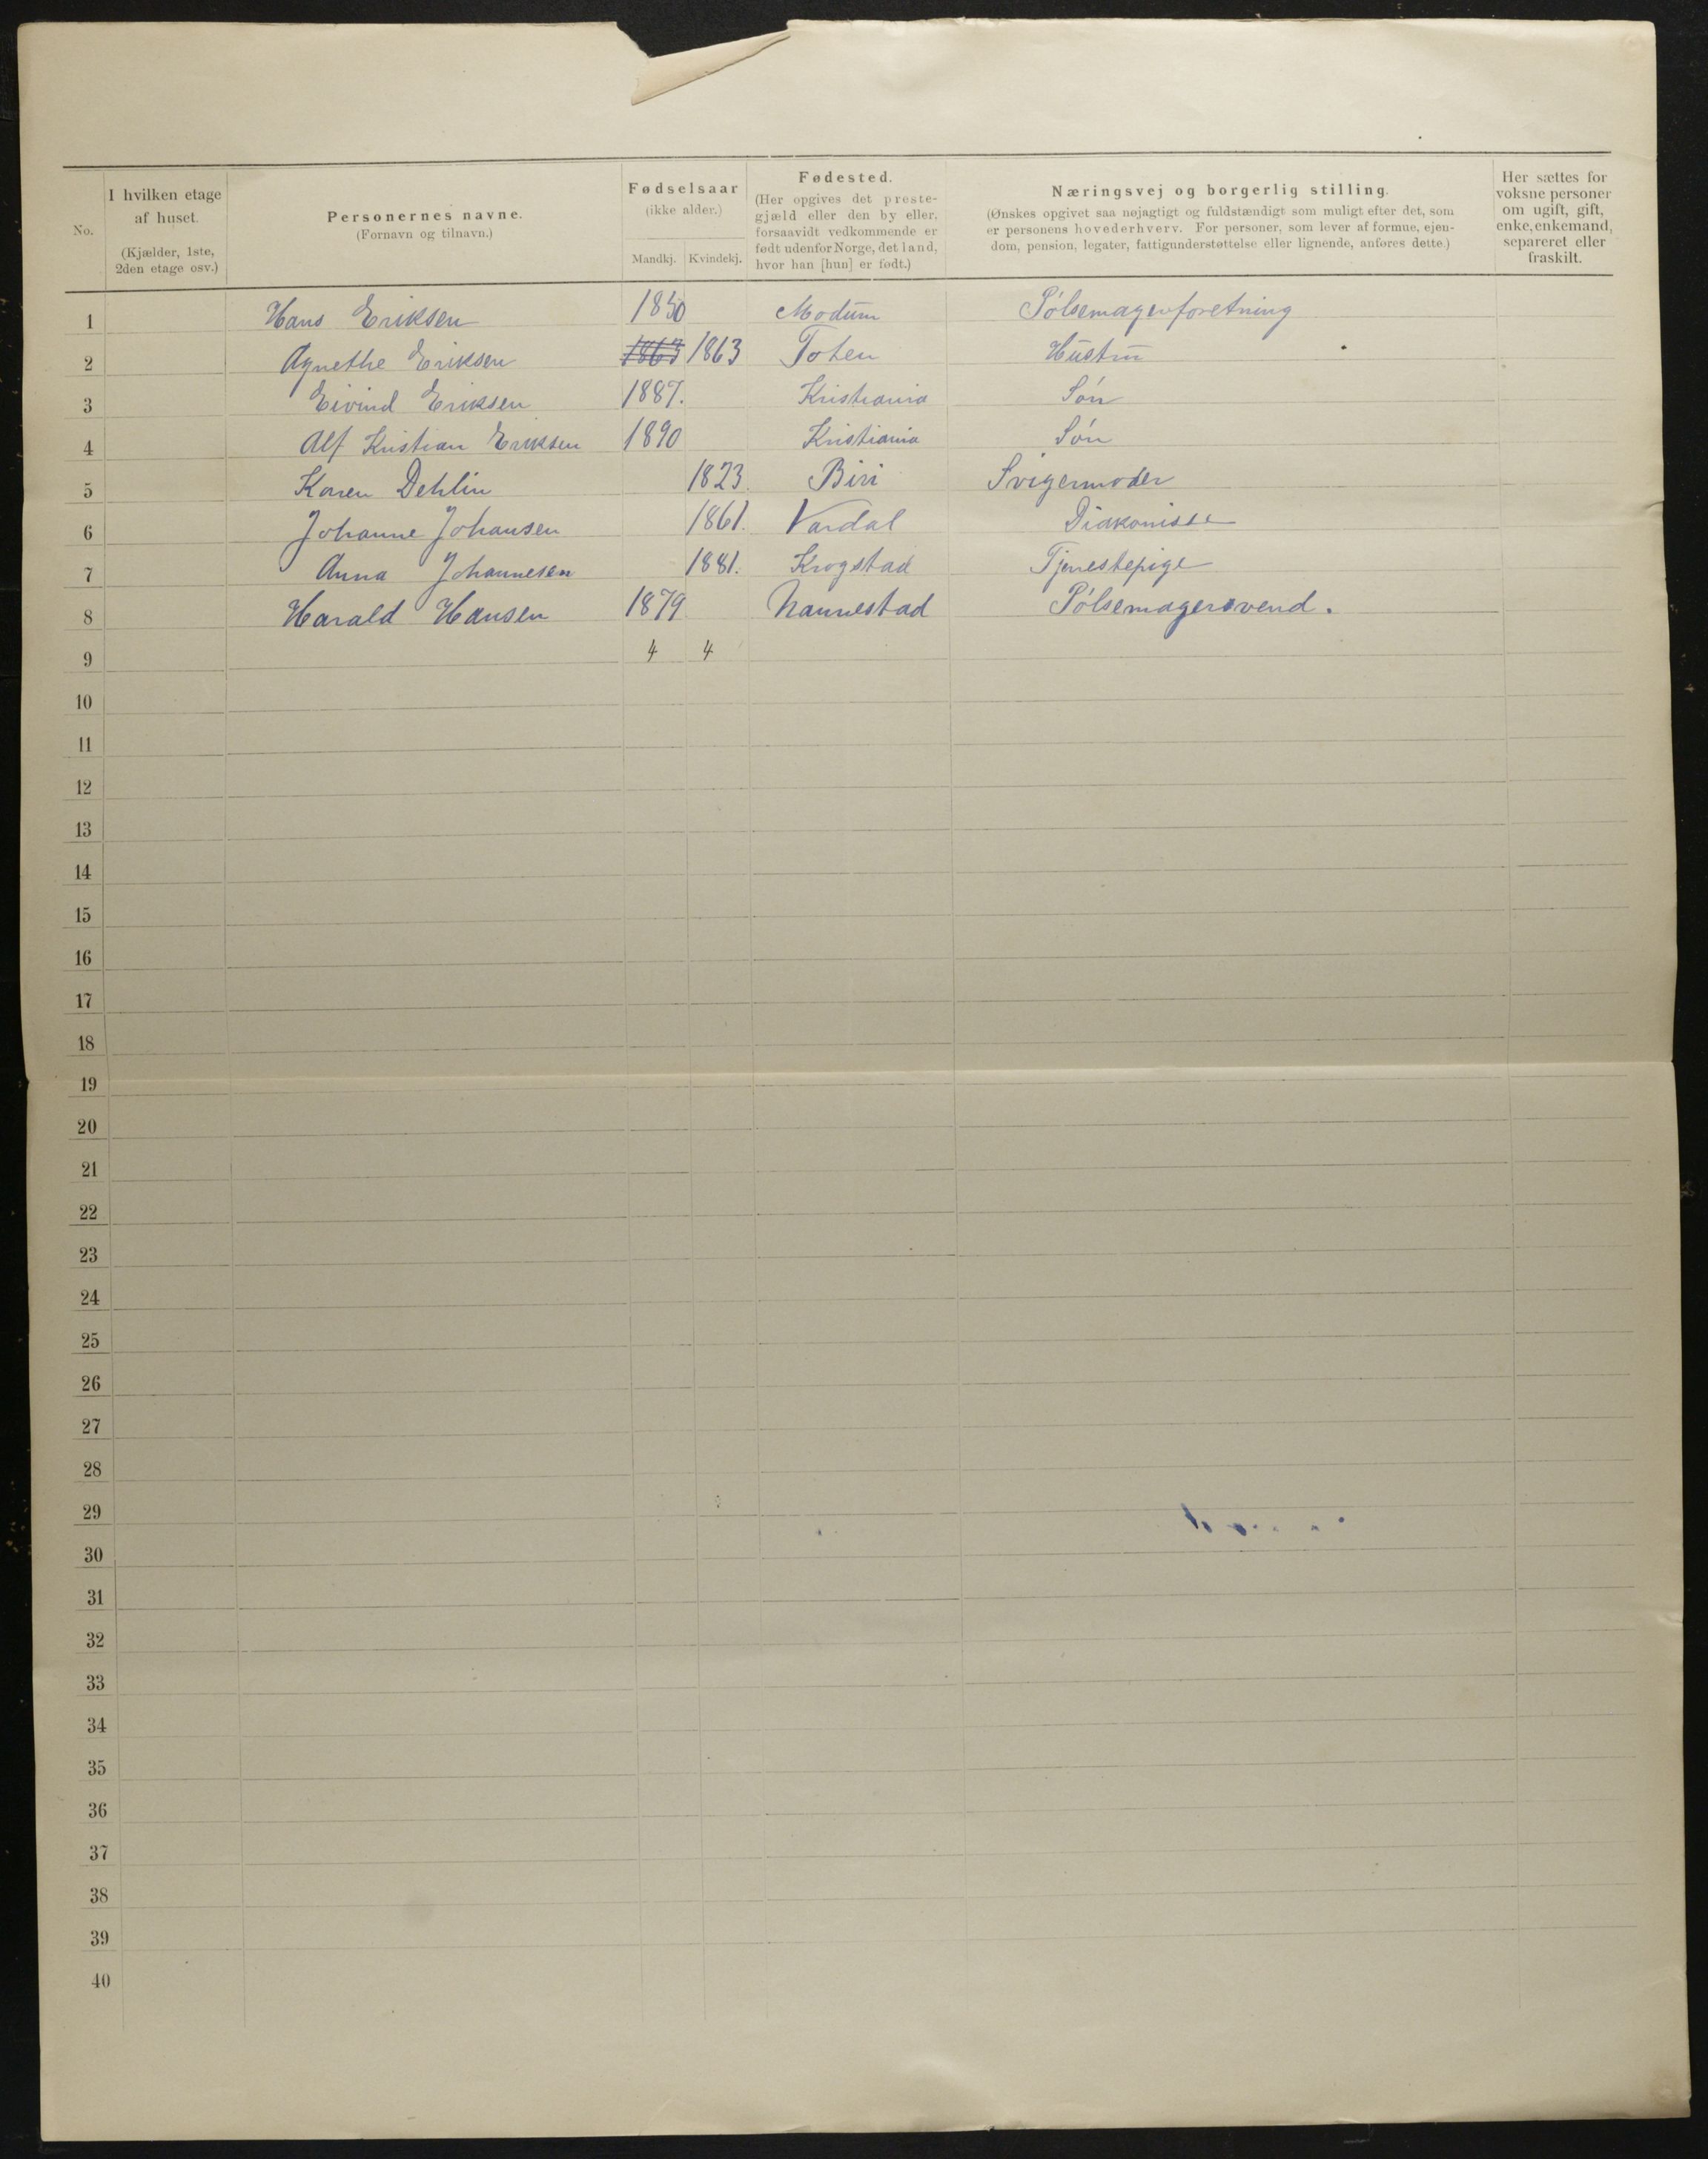 No.
I hvilken etage af huset. (Kjælder, 1ste, 2den etage osv.)
Personernes navne. (Fornavn og tilnavn.)
Fødselsaar (ikke alder.) Mandkj. Kvindekj.
Fødested. (Her opgives det prestegjæld eller den by eller, forsaavidt vedkommende er født udenfor Norge, det land, hvor han [hun] er født.)
Næringsvej og borgerlig stilling. (Ønskes opgivet saa nøjagtigt og fuldstændigt som muligt efter det, som er personens hovederhverv. For personer, som lever af formue, ejendom, pension, legater, fattigunderstøttelse eller lignende, anføres dette.)
Her sættes for voksne personer om ugift, gift, enke, enkemand, separeret eller fraskilt.
1 Hans Eriksen 1850 Modum Pølsemagerforetning
2 Agnethe Eriksen 1863 1863 Toten Hustru
3 Eivind Eriksen 1887. Kristiania Søn
4 Alf Kristian Eriksen 1890 Kristiania Søn
5 Karen Dehlin 1823. Biri Svigermoder
6 Johanne Johansen 1861. Vardal Diakonisse
7 Anna Johannesen 1881. Krogstad Tjenestepige
8 Harald Hansen 1879 Nannestad Pølsemagersvend.
9 4 4
10
11
12
13
14
15
16
17
18
19
20
21
22
23
24
25
26
27
28
29
30
31
32
33
34
35
36
37
38
39
40